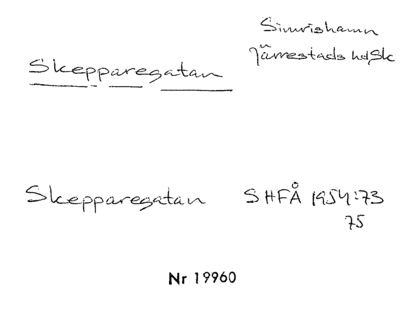 Simrishamn
Järrestads hd, Sk
Skepparegatan
Skepparegatan SHFÅ 1954:73
75
Nr 19960